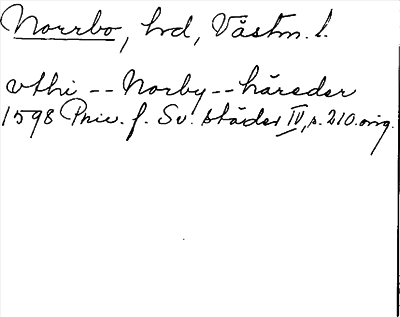 Norrbo, hd, Västm. l.
vthi -- Norby -- häreder
1598 Priv. f. Sv. städer IV, s. 210. orig.